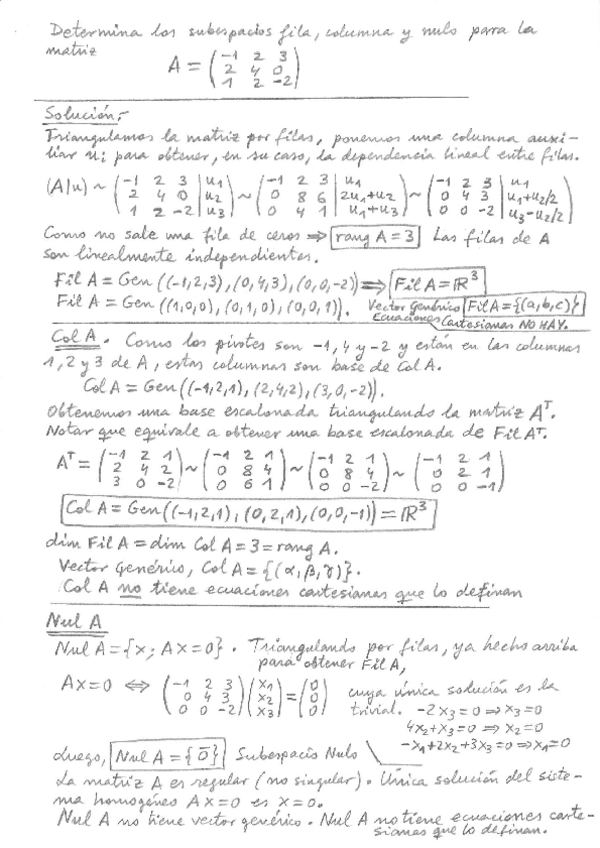 Determina los subespacios fila, columna y nulo parra la
matriz A = (-1 2 3; 2 4 0; 1 2 -2)
Solución.-
Triangulamos la matriz por filas, ponemos una columna auxi-
liar ui para obtener, en su caso, la dependencia lineal entre filas.
(A|u) ~ (-1 2 3 | u1; 2 4 0 | u2; 1 2 -2 | u3) ~ (-1 2 3 | u1; 0 8 6 | 2u1+u2; 0 4 1 | u1+u3) ~ (-1 2 3 | u1; 0 4 3 | u1+u2/2; 0 0 -2 | u3-u2/2)
Como no sale una fila de ceros ⇒ rang A = 3 Las filas de A
son linealmente independientes.
Fil A = Gen ((-1,2,3), (0,4,3), (0,0,-2)) ⇒ Fil A = ℝ³
Fil A = Gen ((1,0,0), (0,1,0), (0,0,1)). Vector Genérico Fil A = {(a,b,c)}
Ecuaciones Cartesianas NO HAY.
Col A. Como los pivotes son -1, 4 y -2 y están en las columnas
1, 2 y 3 de A, estas columnas son base de Col A.
Col A = Gen ((-1,2,1), (2,4,2), (3,0,-2)).
Obtenemos una base escalonada triangulando la matriz Aᵀ.
Notar que equivale a obtener una base escalonada de Fil Aᵀ.
Aᵀ = (-1 2 1; 2 4 2; 3 0 -2) ~ (-1 2 1; 0 8 4; 0 6 1) ~ (-1 2 1; 0 8 4; 0 0 -2) ~ (-1 2 1; 0 2 1; 0 0 -1)
Col A = Gen ((-1,2,1), (0,2,1), (0,0,-1)) = ℝ³
dim Fil A = dim Col A = 3 = rang A.
Vector Genérico, Col A = {(α,β,γ)}.
Col A no tiene ecuaciones cartesianas que lo definan
Nul A
Nul A = {x; Ax=0}. Triangulando por filas, ya hecho arriba
para obtener Fil A,
Ax=0 ⇔ (-1 2 3; 0 4 3; 0 0 -2) (x1; x2; x3) = (0; 0; 0) cuya única solución es la
trivial. -2x3=0 ⇒ x3=0
4x2+x3=0 ⇒ x2=0
-x1+2x2+3x3=0 ⇒ x1=0
Luego, Nul A = {0̄} Subespacio Nulo
La matriz A es regular (no singular). Única solución del siste-
ma homogéneo Ax=0 es x=0.
Nul A no tiene vector genérico. Nul A no tiene ecuaciones carte-
sianas que lo definan.